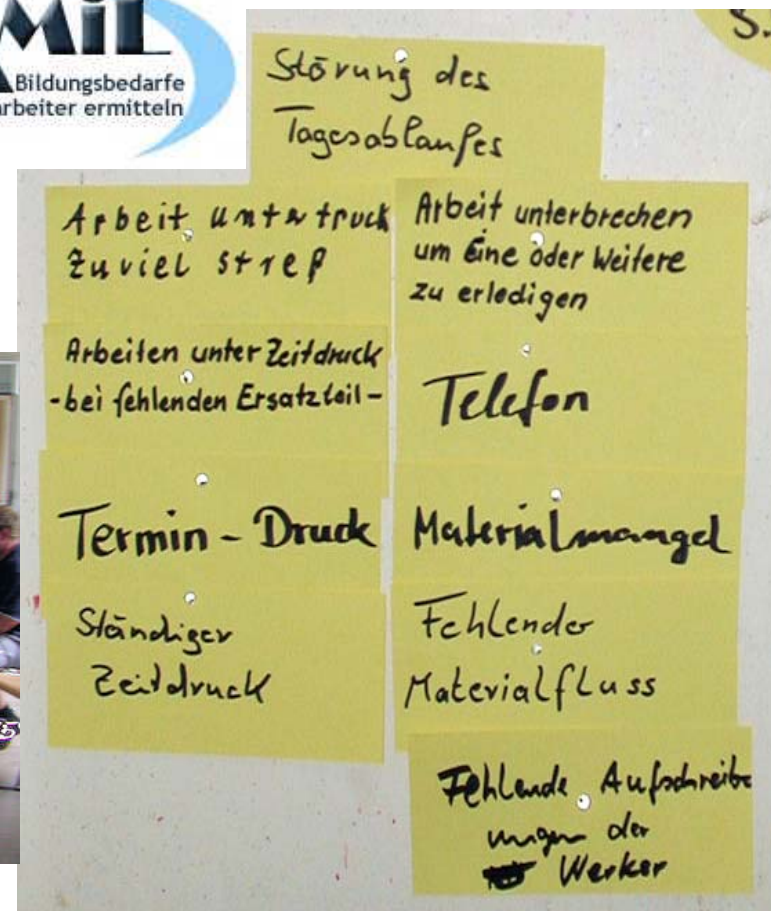 MiL
Bildungsbedarfe
arbeiter ermitteln
S.
Störung des
Tagesablaufes
Arbeit unter truck
Zuviel streß
Arbeiten unter Zeitdruck
-bei fehlenden Ersatzteil-
Termin-Druck
Ständiger
Zeitdruck
Arbeit unterbrechen
um Eine oder Weitere
zu erledigen
Telefon
Materialmangel
Fehlender
Materialfluss
Fehlende Aufschreibe
ungen der
Werker